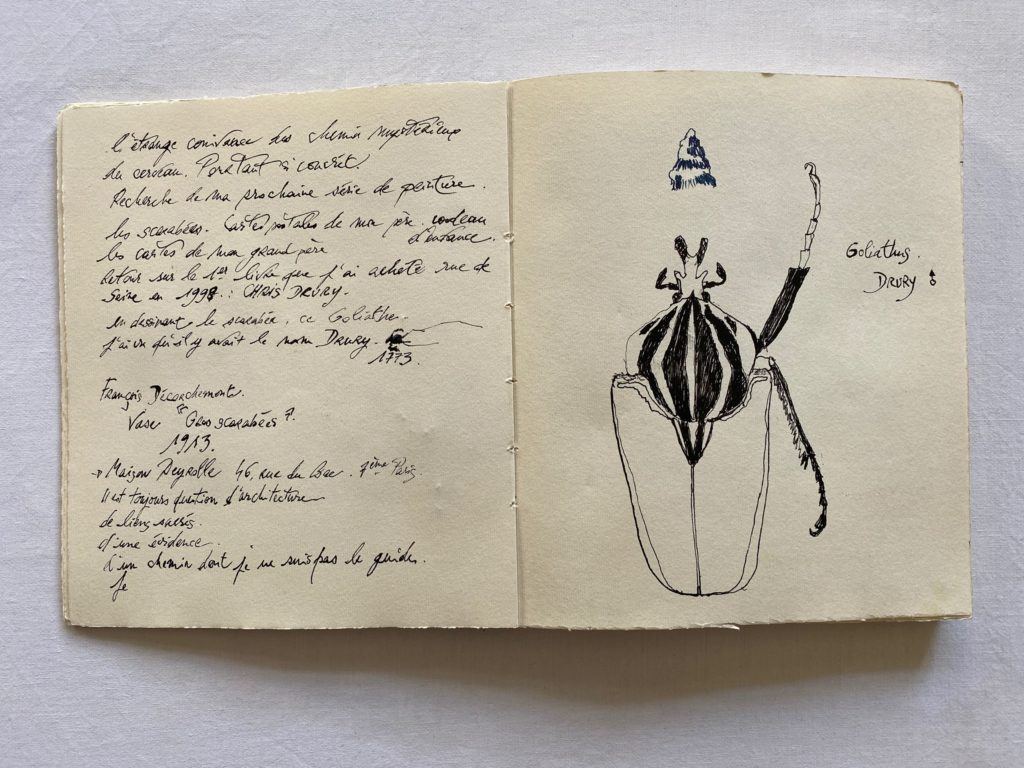 l'étrange conivence des chemin mystérieux
du cerveau. Pourtant si concret.
Recherche de ma prochaine série de peinture.
les scarabées. Cartes postales de mon père. d'enfance.
les cartes de mon grand père
retour sur le 1er livre que j'ai acheté rue de
Seine en 1998 : CHRIS DRURY.
en dessinant le scarabée, ce Goliathus.
j'ai vu qu'il y avait le nom DRURY.
1773.
François Décorchemont.
Vase "Gros scarabées".
1913.
→ Maison Deyrolle 46, rue du Bac. 7ème Paris.
Il est toujours question d'architecture
de liens sacrés.
d'une évidence.
d'un chemin dont je ne suis pas le guide.
Je
Goliathus.
DRURY ♂